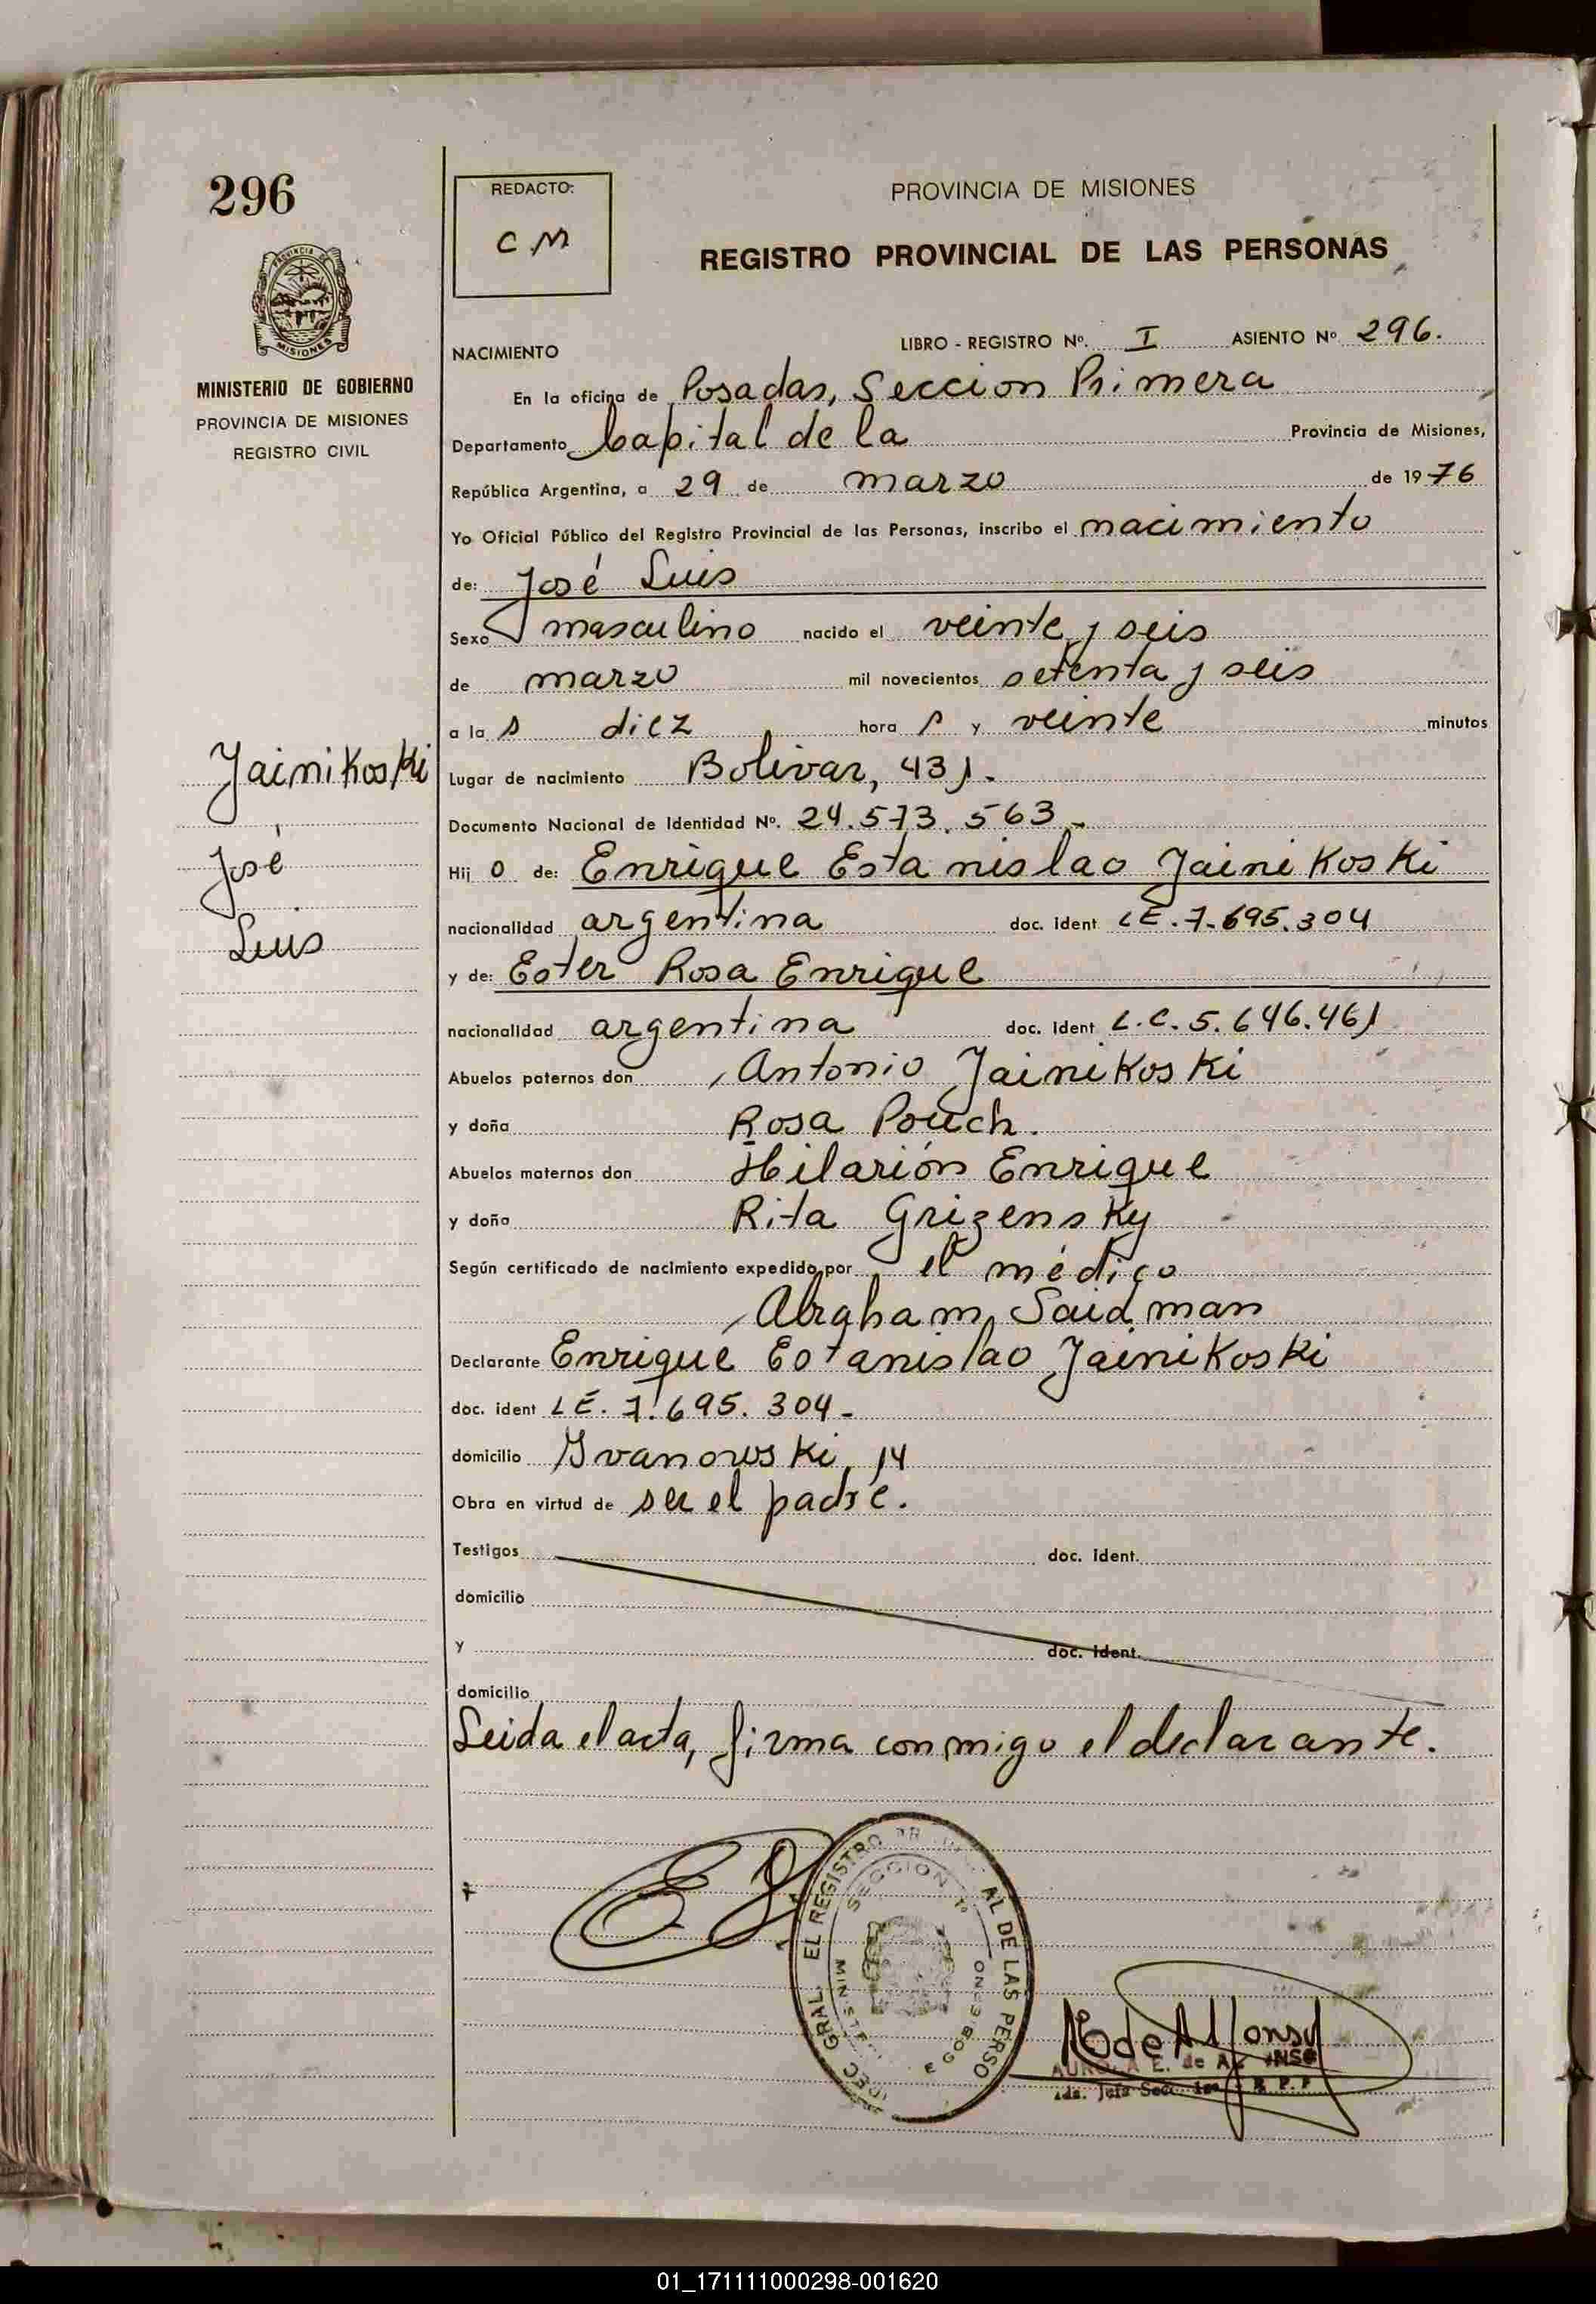 296
REDACTO:
C M
PROVINCIA DE MISIONES
REGISTRO PROVINCIAL DE LAS PERSONAS
MISIONES
MINISTERIO DE GOBIERNO
PROVINCIA DE MISIONES
REGISTRO CIVIL
NACIMIENTO
LIBRO - REGISTRO Nº. I ASIENTO Nº 296.
En la oficina de Posadas, Seccion Primera
Departamento Capital de la Provincia de Misiones,
República Argentina, a 29 de marzo de 1976
Yo Oficial Público del Registro Provincial de las Personas, inscribo el nacimiento
de: José Luis
Sexo masculino nacido el veinte y seis
de marzo mil novecientos setenta y seis
a las diez horas y veinte minutos
Jainikoski
José
Luis
Lugar de nacimiento Bolivar, 431.
Documento Nacional de Identidad Nº. 24.573.563.-
Hijo de: Enrique Estanislao Jainikoski
nacionalidad argentina doc. ident LE.7.695.304
y de: Ester Rosa Enrique
nacionalidad argentina doc. ident L.C.5.646.461
Abuelos paternos don Antonio Jainikoski
y doña Rosa Pouch.
Abuelos maternos don Hilarión Enrique
y doña Rita Grizensky
Según certificado de nacimiento expedido por el médico
Abraham Saidman
Declarante Enrique Estanislao Jainikoski
doc. ident LE. 7.695.304-
domicilio Ivanowski, 14
Obra en virtud de ser el padre.
Testigos doc. ident.
domicilio
y doc. ident.
domicilio
Leida el acta, firma conmigo el declarante.
SECCION 1º
01_171111000298-001620